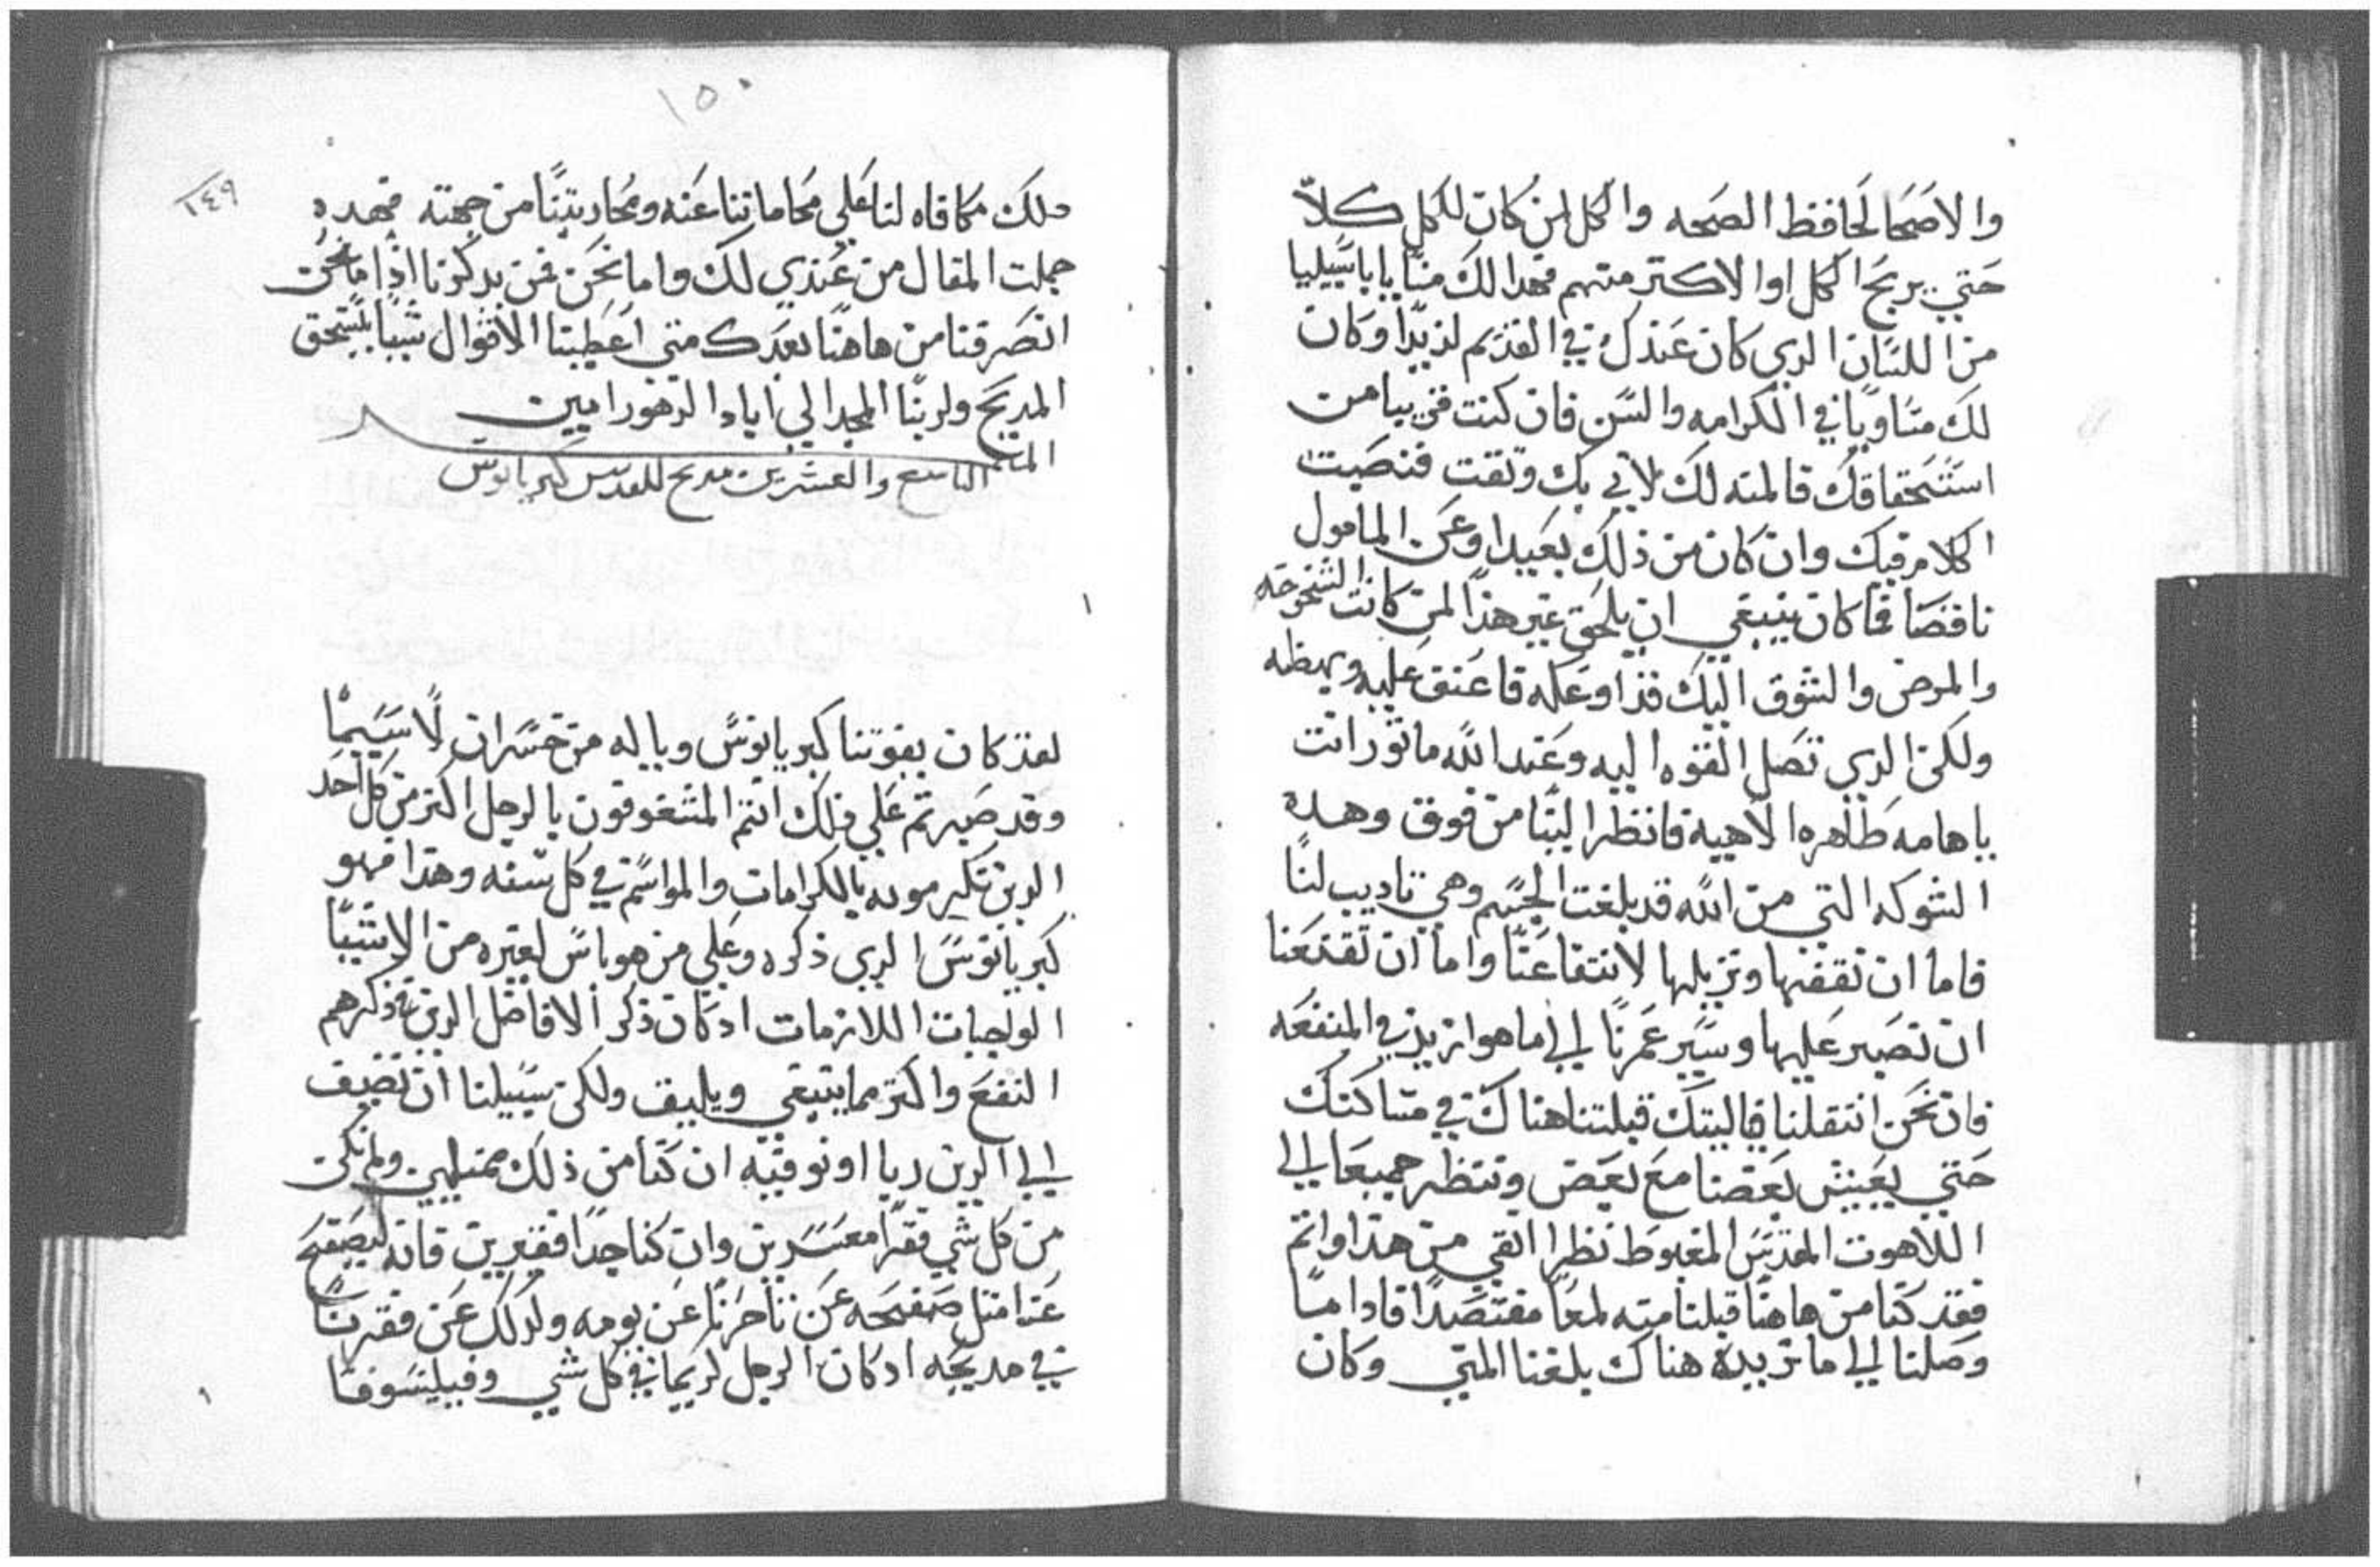 والاصحا لحافظ الصحه والكل لمن كان لكل كلاّ
حتي يربح الكل اوا لاكتر منهم فهدا لك منا يا باسيليا
من اللسان الدي كان عندك في القديم لديدا وكان
لك متساويا في الكرامه والسن فان كنت قريبا من
استحقاقك فالمنه لك لاني بك وثقت فنصبت
الكلام فيك وان كان من ذلك بعيدا وعن المامول
ناقصا فما كان ينبغي ان يلحق غير هذا لمن كانت الشيخوخه
والمرض والشوق اليك قد اوعكه فاعنق عليه وبهظه
ولكن الدي تصل القوه اليه وعند الله ماثور انت
ياهامه طاهره الاهية فانظر الينا من فوق وهده
الشوكه التي من الله قد بلغت الجسم وهي تاديب لنا
فاما ان تقفها وتزيلها لانتفاعنا واما ان تقنعنا
ان نصبر عليها وسير عمرنا الي ما هو ازيد في المنفعه
فان نحن انتقلنا فاليتك قبلتنا هناك في مساكنك
حتي يعيش بعضنا مع بعض وننظر جميعا الي
اللاهوت المقدس المغبوط نظرا انقي من هذا واتم
فقد كنا من هاهنا قبلنا منه لمعا مقتصدا فادا ما
وصلنا الي ما نريده هناك بلغنا المني وكان
١٥٠
١٤٩
دلك مكافاه لنا علي محاماتنا عنه ومحاربتنا من جهته فهده
جملت المقال من عندي لك واما نحن فمن يدكرنا اذا ما نحن
انصرفنا من هاهنا بعدك متي اعطينا الاقوال شيا يستحق
المديح ولربنا المجد الي اباد الدهور امين
الميمر التاسع والعشرين مديح للقديس كبريانوس
لقد كان يفوتنا كبريانوس وياله من خسران لا سيما
وقد صبرتم علي ذلك انتم المشغوفون بالرجل اكتر من كل احد
الدين تكرمونه بالكرامات والمواسم في كل سنه وهذا فهو
كبريانوس الدي ذكره وعلي من هو ناس لغيره من الاشيا
الواجبات اللازمات اد كان ذكر الافاضل الدين في ذكرهم
النفع واكتر مما ينبغي ويليق ولكن سبيلنا ان نضيف
الي الدين ربا او نوفيه ان كنا من ذلك متمهلين ولم نكن
من كل شي فقرا معسرين وان كنا جدا فقيرين فانه ليصفح
عنا متل صفحه عن تاخرنا عن يومه ولدلك عن فقرنا
في مديحه اد كان الرجل كريما في كل شي وفيلسوفا